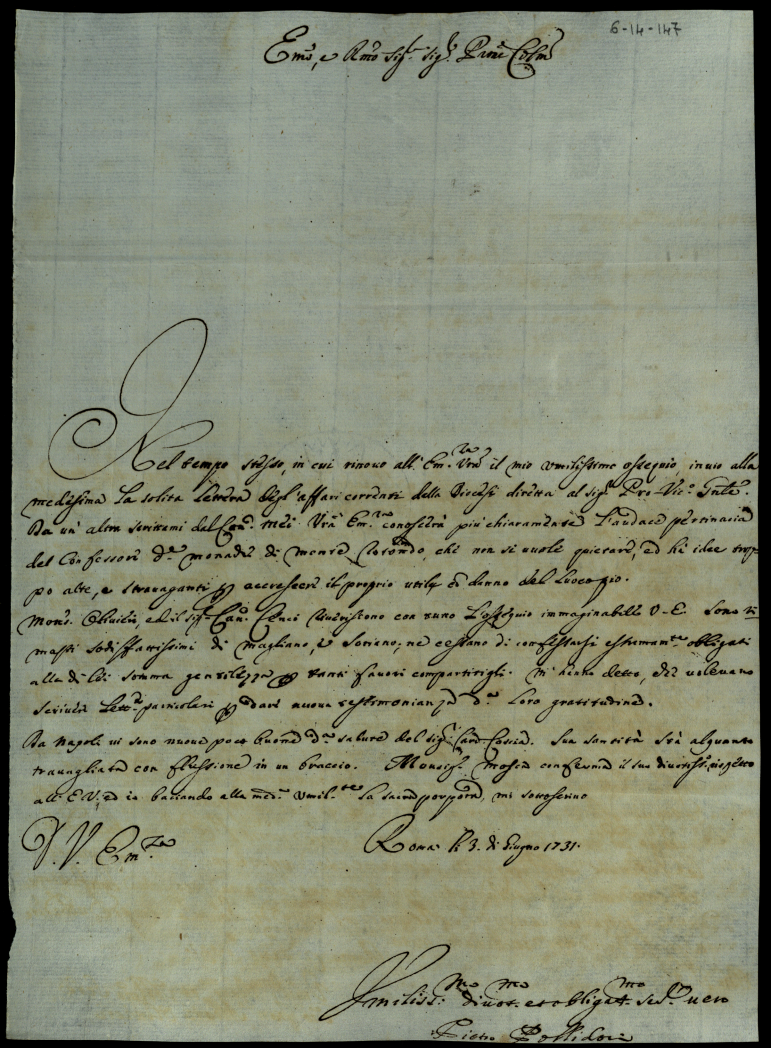 6-14-147
Em̃o, e Rmõ Sig.r Sig.r Prone Colmo
Nel tempo stesso, in cui rinovo all' Em. Vrã il mio umilissimo ossequio, invio alla
medesima la solita lettera degl' affari correnti della Diocesi diretta al Sig.r Pro-Vic.o Gnle.
Da un' altra scrittami dal Can.co Mei Vrã Em.za conoscerà più chiaramente l'audace pertinacia
del Confessore d.e monache di Monte Rotondo, che non si vuole quietare, ed hà idee trop
po alte, e stravaganti p accrescere il proprio utile in danno del Luoco pio.
Mons.r e il Sig.r Can.co Cenci riveriscono con tutto l'ossequio immaginabile V. E. Sono ri
masti sodisfattissimi di Magliano, e Soriano, ne cessano di confessarsi estremam.te obligati
alla di Lei somma gentilezza p tanti favori compartitigli. M' hanno detto, che volevano
scrivere lett.e particolari p dare nuova testimonianza d.a loro gratitudine.
Da Napoli vi sono nuove poco buone d.a salute del Sig.r Card. Coscia. Sua Santità stà alquanto
travagliata con flussione in un braccio. Monsig.r conferma il suo divotiss. rispetto
all' E.V., ed io baciando alla med.a umil.te la sacra porpora, mi sottoscrivo
D. V. Em.za
Roma li 3. di Giugno 1731.
Umiliss.mo divot.mo et obligat.mo Ser.re vero
Pietro Pollidori